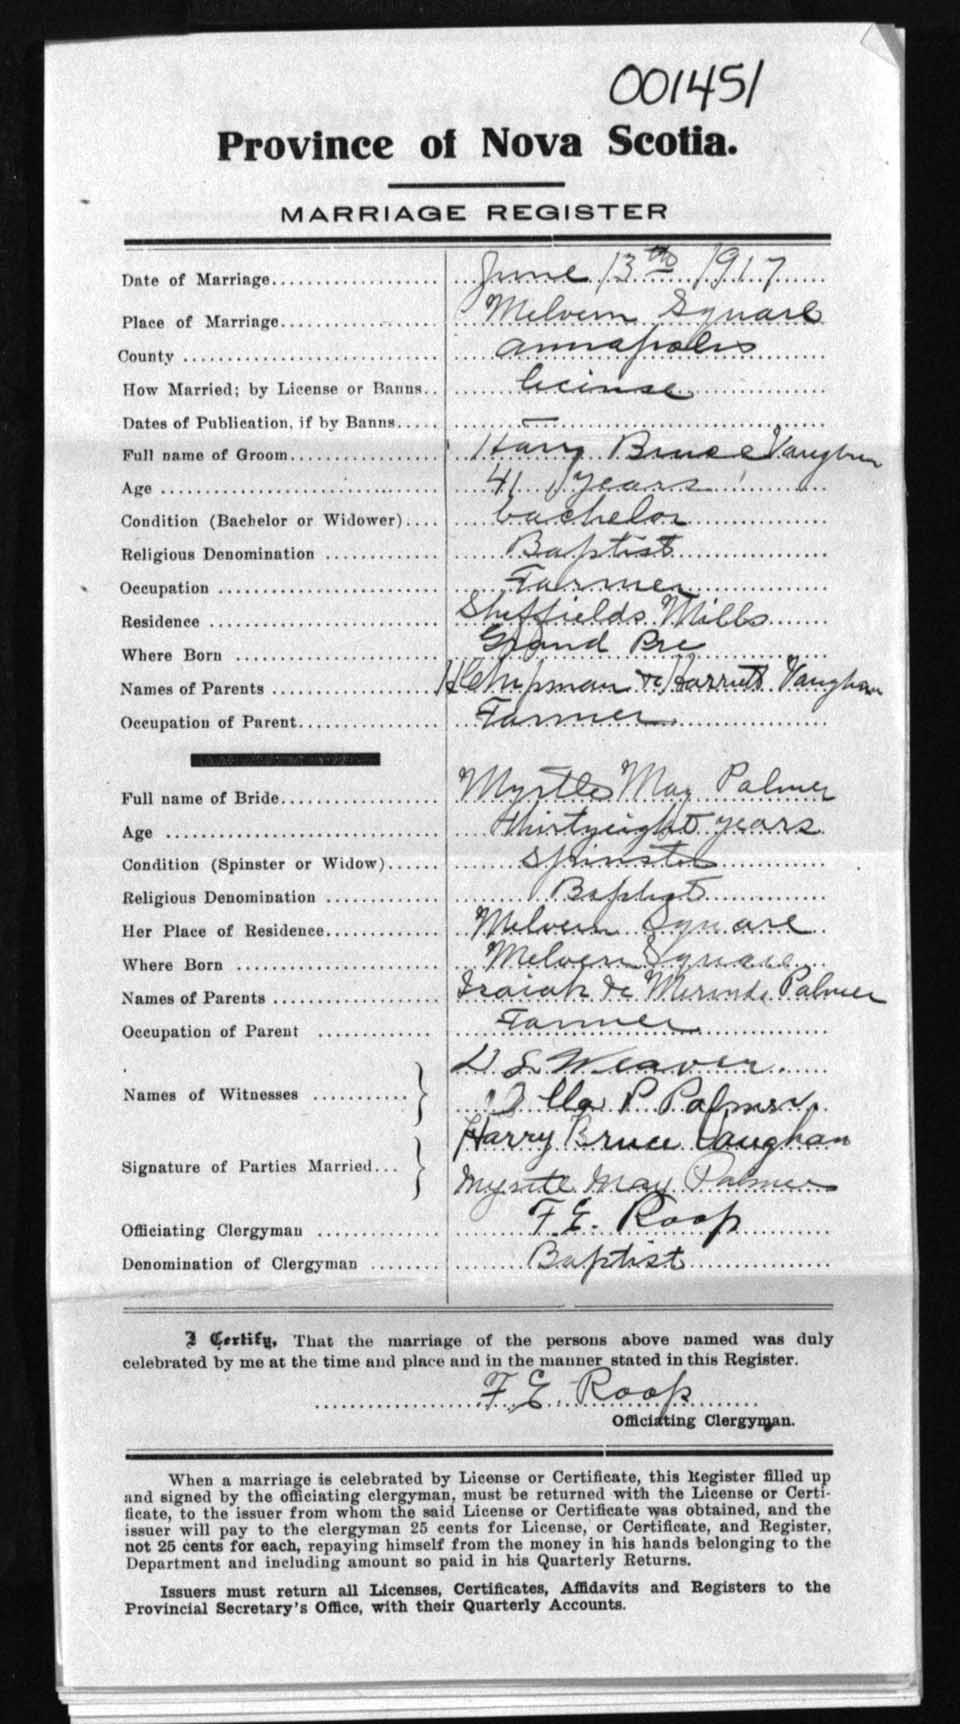 001451
Province of Nova Scotia.
MARRIAGE REGISTER
Date of Marriage June 13th 1917
Place of Marriage Melvern Square
County Annapolis
How Married; by License or Banns license
Dates of Publication, if by Banns —
Full name of Groom Harry Bruce Vaughan
Age 41 years
Condition (Bachelor or Widower) bachelor
Religious Denomination Baptist
Occupation Farmer
Residence Sheffields Mills
Where Born Grand Pre
Names of Parents Chipman & Harriett Vaughan
Occupation of Parent Farmer
Full name of Bride Myrtle May Palmer
Age thirtyeight years
Condition (Spinster or Widow) spinster
Religious Denomination Baptist
Her Place of Residence Melvern Square
Where Born Melvern Square
Names of Parents Isaiah & Merinda Palmer
Occupation of Parent Farmer
Names of Witnesses S Weaver
P Palmer
Signature of Parties Married Harry Bruce Vaughan
Myrtle May Palmer
Officiating Clergyman F. E. Roop
Denomination of Clergyman Baptist
I Certify, That the marriage of the persons above named was duly
celebrated by me at the time and place and in the manner stated in this Register.
F E Roop
Officiating Clergyman.
When a marriage is celebrated by License or Certificate, this Register filled up
and signed by the officiating clergyman, must be returned with the License or Certi-
ficate, to the issuer from whom the said License or Certificate was obtained, and the
issuer will pay to the clergyman 25 cents for License, or Certificate, and Register,
not 25 cents for each, repaying himself from the money in his hands belonging to the
Department and including amount so paid in his Quarterly Returns.
Issuers must return all Licenses, Certificates, Affidavits and Registers to the
Provincial Secretary's Office, with their Quarterly Accounts.